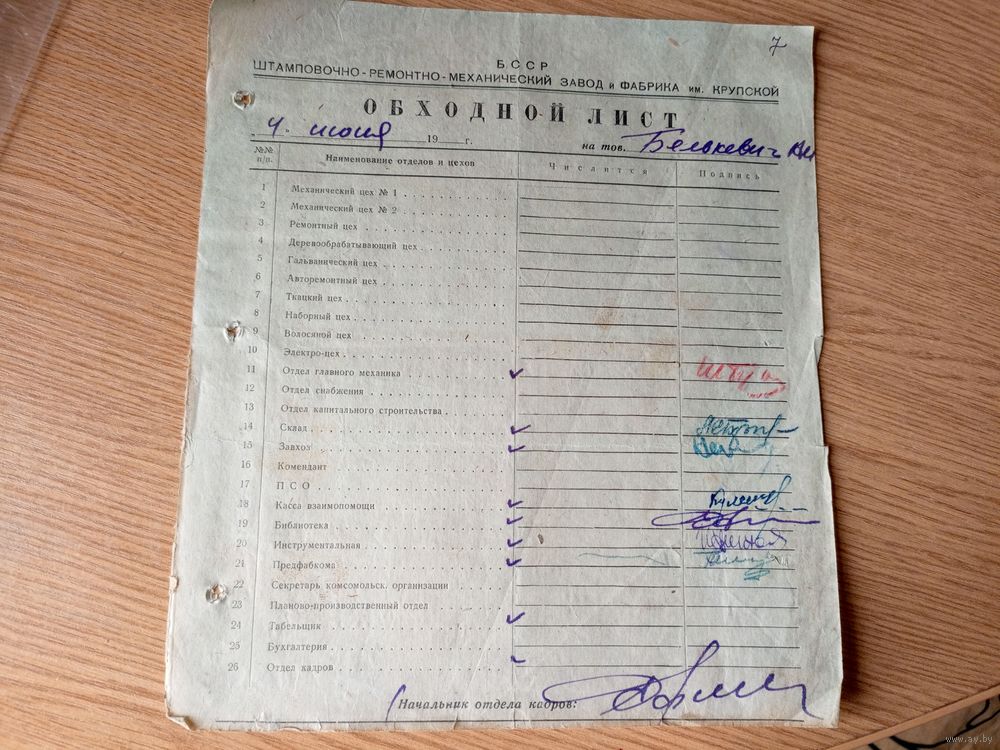 7
БССР
ШТАМПОВОЧНО-РЕМОНТНО-МЕХАНИЧЕСКИЙ ЗАВОД и ФАБРИКА им. КРУПСКОЙ
ОБХОДНОЙ ЛИСТ
„4" июня 19 г. на тов. Белькевич
№№ п/п. Наименование отделов и цехов Числится Подпись
1 Механический цех № 1
2 Механический цех № 2
3 Ремонтный цех
4 Деревообрабатывающий цех
5 Гальванический цех
6 Авторемонтный цех
7 Ткацкий цех
8 Наборный цех
9 Волосяной цех
10 Электро-цех
11 Отдел главного механика
12 Отдел снабжения
13 Отдел капитального строительства
14 Склад
15 Завхоз
16 Комендант
17 ПСО
18 Касса взаимопомощи
19 Библиотека
20 Инструментальная
21 Предфабкома
22 Секретарь комсомольск. организации
23 Планово-производственный отдел
24 Табельщик
25 Бухгалтерия
26 Отдел кадров
Начальник отдела кадров:
www.ay.by